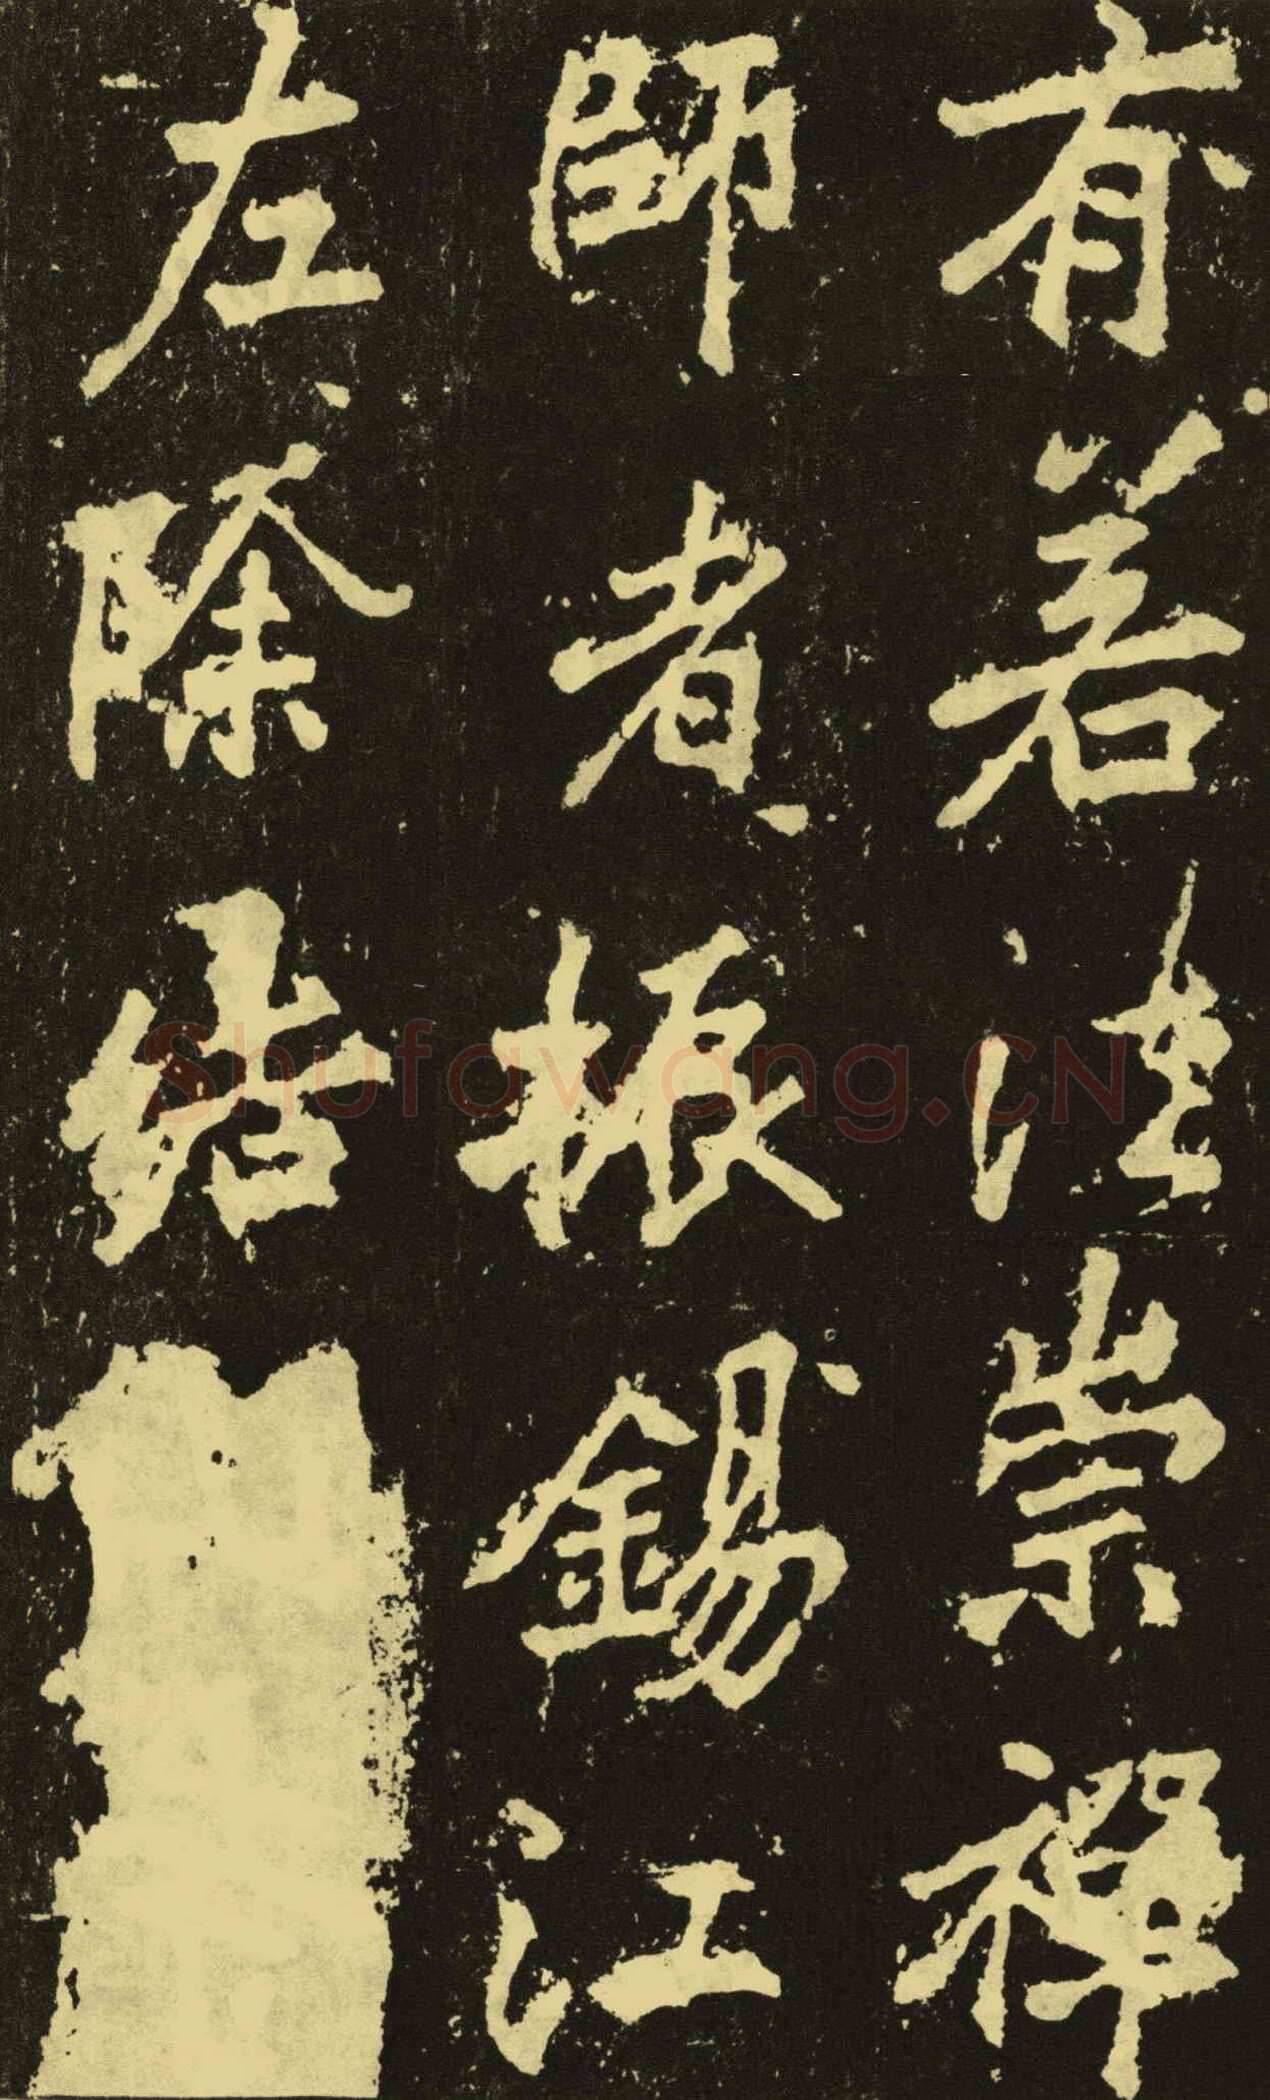 有若法崇禪
師者振錫江
左除結
Shufawang.CN